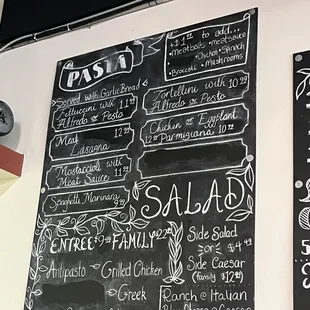 PASTA
Served with Garlic Bread
Fettuccini with 11.99
Alfredo or Pesto
Meat 12.99
Lasagna
Mostaccioli with 11.99
Meat Sauce
Spaghetti Marinara
+ $1.50 to add...
• meatballs • meatsauce
• Chicken • Spinach
• Broccoli • Mushrooms
Tortellini with 10.99
Alfredo or Pesto
Chicken or Eggplant
12.99 Parmigiana 10.99
SALAD
ENTREE FAMILY
Antipasto
Grilled Chicken
Greek
Side Salad
or $4.49
Side Caesar
(family $12.99)
Ranch Italian